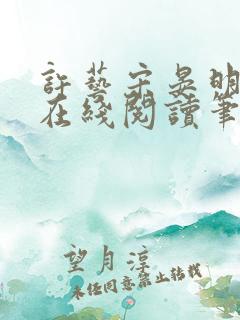 許藝宋晏明
在綫閱讀筆
望月淳
未经同意禁止转载